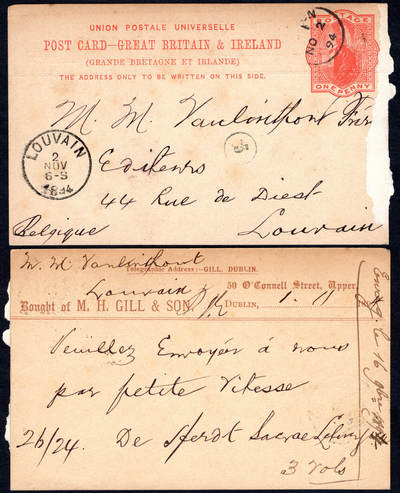 UNION POSTALE UNIVERSELLE
POST CARD—GREAT BRITAIN & IRELAND
(GRANDE BRETAGNE ET IRLANDE)
THE ADDRESS ONLY TO BE WRITTEN ON THIS SIDE.
POSTAGE
ONE PENNY
NO 2
94
M. M. Vanlinthout Frères
LOUVAIN
2
NOV
6-S
1894
Editeurs
44 Rue de Diest
Louvain
Belgique
M. M. Vanlinthout
Louvain
Telegraphic Address:—GILL, DUBLIN.
50 O'Connell Street, Upper,
Bought of M. H. GILL & SON,
DUBLIN, 1. 11
Veuillez Envoyer à nous
par petite Vitesse
26/24. De Herdt Sacrae
3 Vols